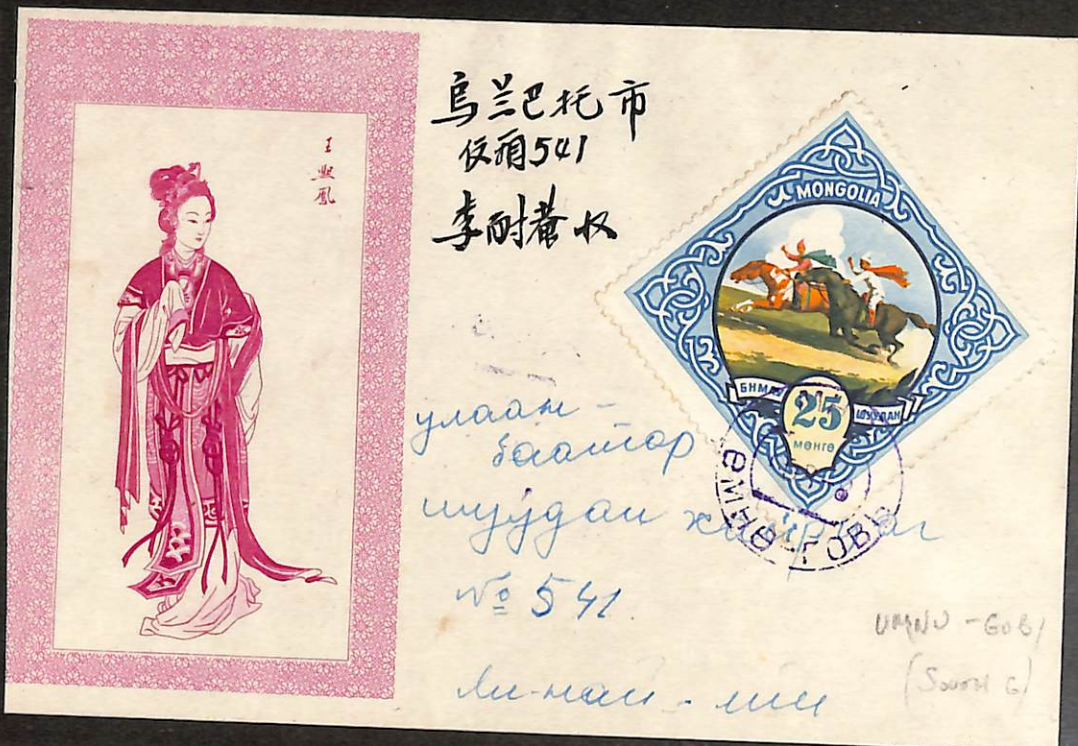 王熙鳳
乌兰巴托市
信箱541
李耐 收
MONGOLIA
БНМАУ ШУУДАН
25
МӨНГӨ
ӨМНӨ-ГОВЬ
улаан-
баатор
шуудан
№ 541
Ли-най-
UMNU - GOBI
(SOUTH G)